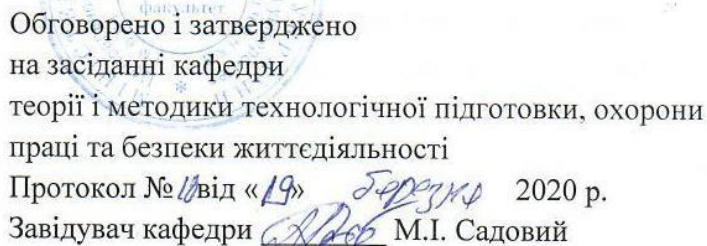 факультет
Обговорено і затверджено
на засіданні кафедри
теорії і методики технологічної підготовки, охорони
праці та безпеки життєдіяльності
Протокол № від «19» березня 2020 р.
Завідувач кафедри М.І. Садовий